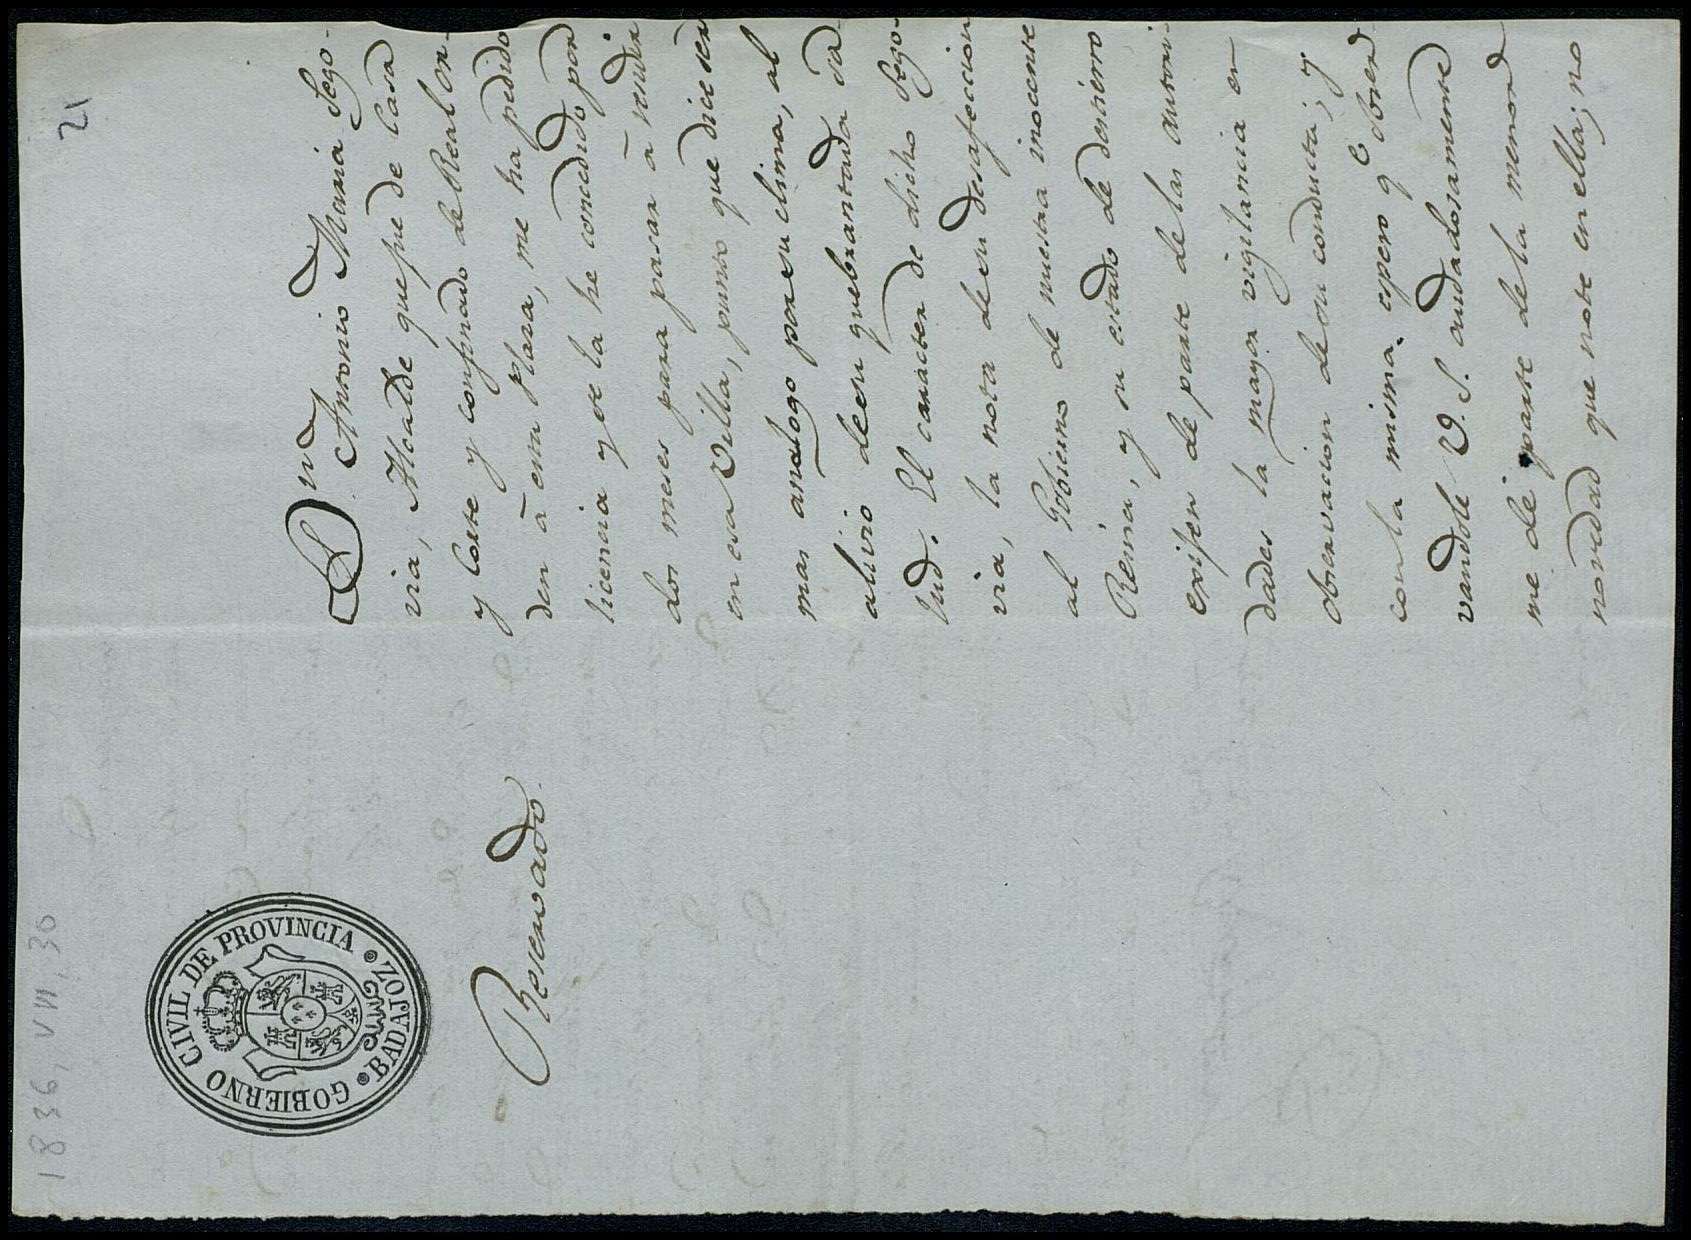 1836, VII, 30
21
GOBIERNO CIVIL DE PROVINCIA
BADAJOZ
Reservado.
Dn Antonio Maria Sego-
via, Alcalde que fue de Casa
y Corte y confinado de Real or-
den á esta plaza, me ha pedido
licencia y se la he concedido por
dos meses para pasar á residir
en esa Villa, punto que dice ser
mas analogo por su clima, al
alivio de su quebrantada sa-
lud. El caracter de dicho Sego-
via, la nota de su desafeccion
al Gobierno de nuestra inocente
Reina, y su estado de destierro
exijen de parte de las autori-
dades la mayor vigilancia en
observacion de su conducta; y
con la misma espero qe obser-
vandole V. S. cuidadosamente
me dé parte de la menor
novedad que note en ella; no